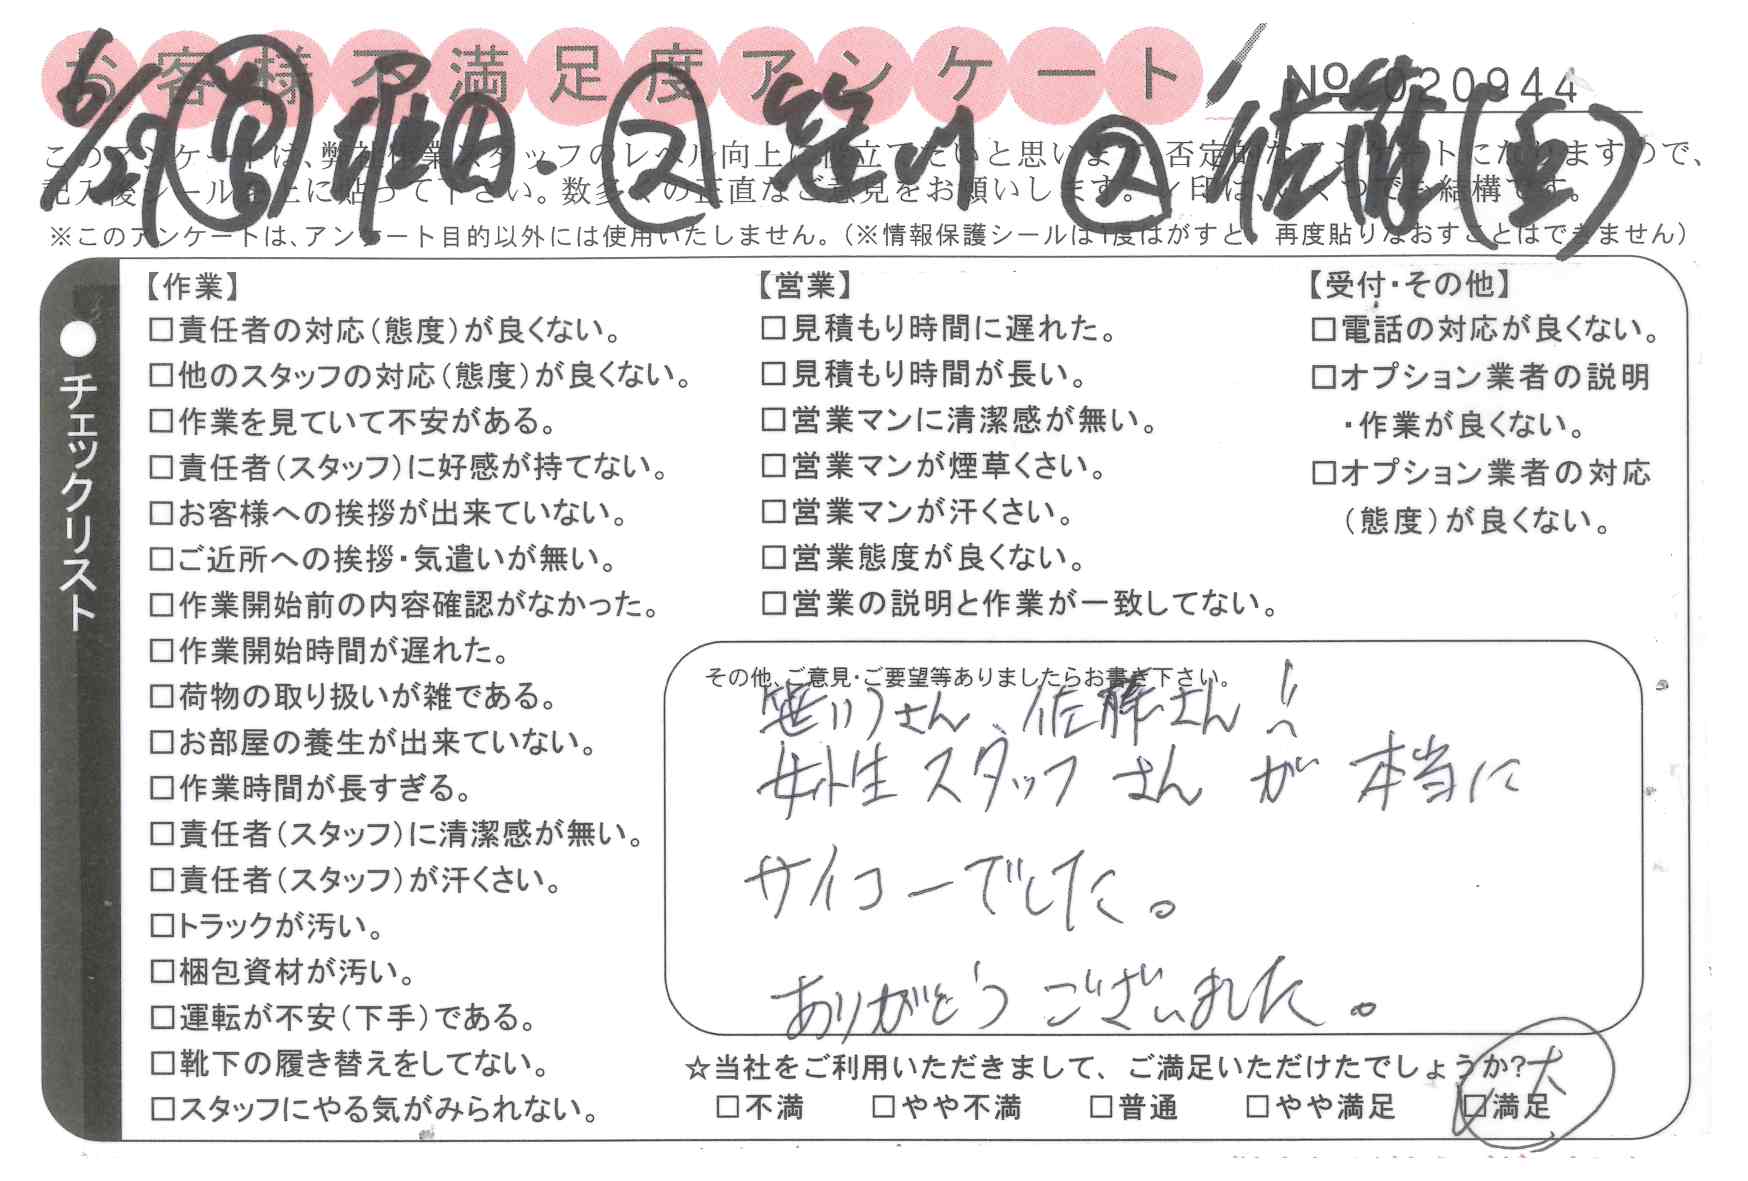 お客様不満足度アンケート
No 020944
6/29 堀田・ス 笹川 ス 佐藤
このアンケートは、弊社作業スタッフのレベル向上に役立てたいと思います。否定的なアンケートになりますので、
記入後シールを上に貼って下さい。数多くの正直なご意見をお願いします。レ印は、いくつでも結構です。
※このアンケートは、アンケート目的以外には使用いたしません。（※情報保護シールは1度はがすと、再度貼りなおすことはできません）
●チェックリスト
【作業】
□責任者の対応（態度）が良くない。
□他のスタッフの対応（態度）が良くない。
□作業を見ていて不安がある。
□責任者（スタッフ）に好感が持てない。
□お客様への挨拶が出来ていない。
□ご近所への挨拶・気遣いが無い。
□作業開始前の内容確認がなかった。
□作業開始時間が遅れた。
□荷物の取り扱いが雑である。
□お部屋の養生が出来ていない。
□作業時間が長すぎる。
□責任者（スタッフ）に清潔感が無い。
□責任者（スタッフ）が汗くさい。
□トラックが汚い。
□梱包資材が汚い。
□運転が不安（下手）である。
□靴下の履き替えをしてない。
□スタッフにやる気がみられない。
【営業】
□見積もり時間に遅れた。
□見積もり時間が長い。
□営業マンに清潔感が無い。
□営業マンが煙草くさい。
□営業マンが汗くさい。
□営業態度が良くない。
□営業の説明と作業が一致してない。
【受付・その他】
□電話の対応が良くない。
□オプション業者の説明
・作業が良くない。
□オプション業者の対応
（態度）が良くない。
その他、ご意見・ご要望等ありましたらお書き下さい。
笹川さん、佐藤さん!!
女性スタッフさんが本当に
サイコーでした。
ありがとうございました。
☆当社をご利用いただきまして、ご満足いただけたでしょうか?
□不満 □やや不満 □普通 □やや満足 □満足
大